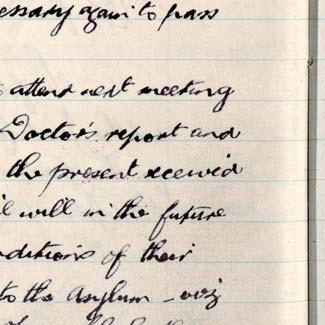 essary again to pass
attend next meeting
Doctor's report and
the present received
will in the future
nditions of their
to the Asylum - viz